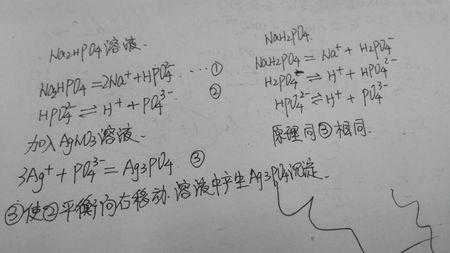 Na2HPO4溶液.
Na2HPO4=2Na⁺+HPO4²⁻ ·····①
HPO4²⁻⇌H⁺+PO4³⁻ ②
加入AgNO3溶液.
3Ag⁺+PO4³⁻=Ag3PO4 ③
③使②平衡向右移动.溶液中产生Ag3PO4沉淀.
NaH2PO4.
NaH2PO4=Na⁺+H2PO4⁻
H2PO4⁻⇌H⁺+HPO4²⁻
HPO4²⁻⇌H⁺+PO4³⁻
原理同③相同.